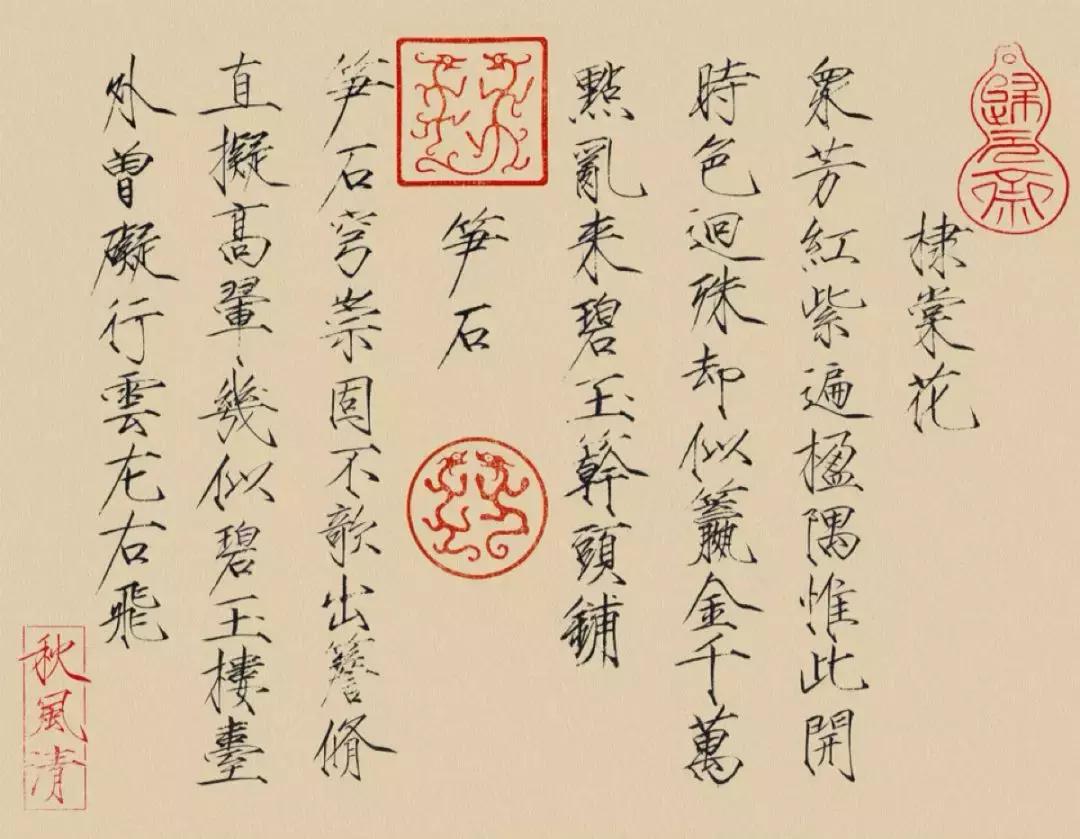 棣棠花
眾芳紅紫遍楹隅惟此開
時色迥殊却似籯金千萬
點亂来碧玉簳頭鋪
笋石
笋石穹崇固不欹出簷脩
直擬高翬幾似碧玉樓臺
外曾礙行雲左右飛
秋風清